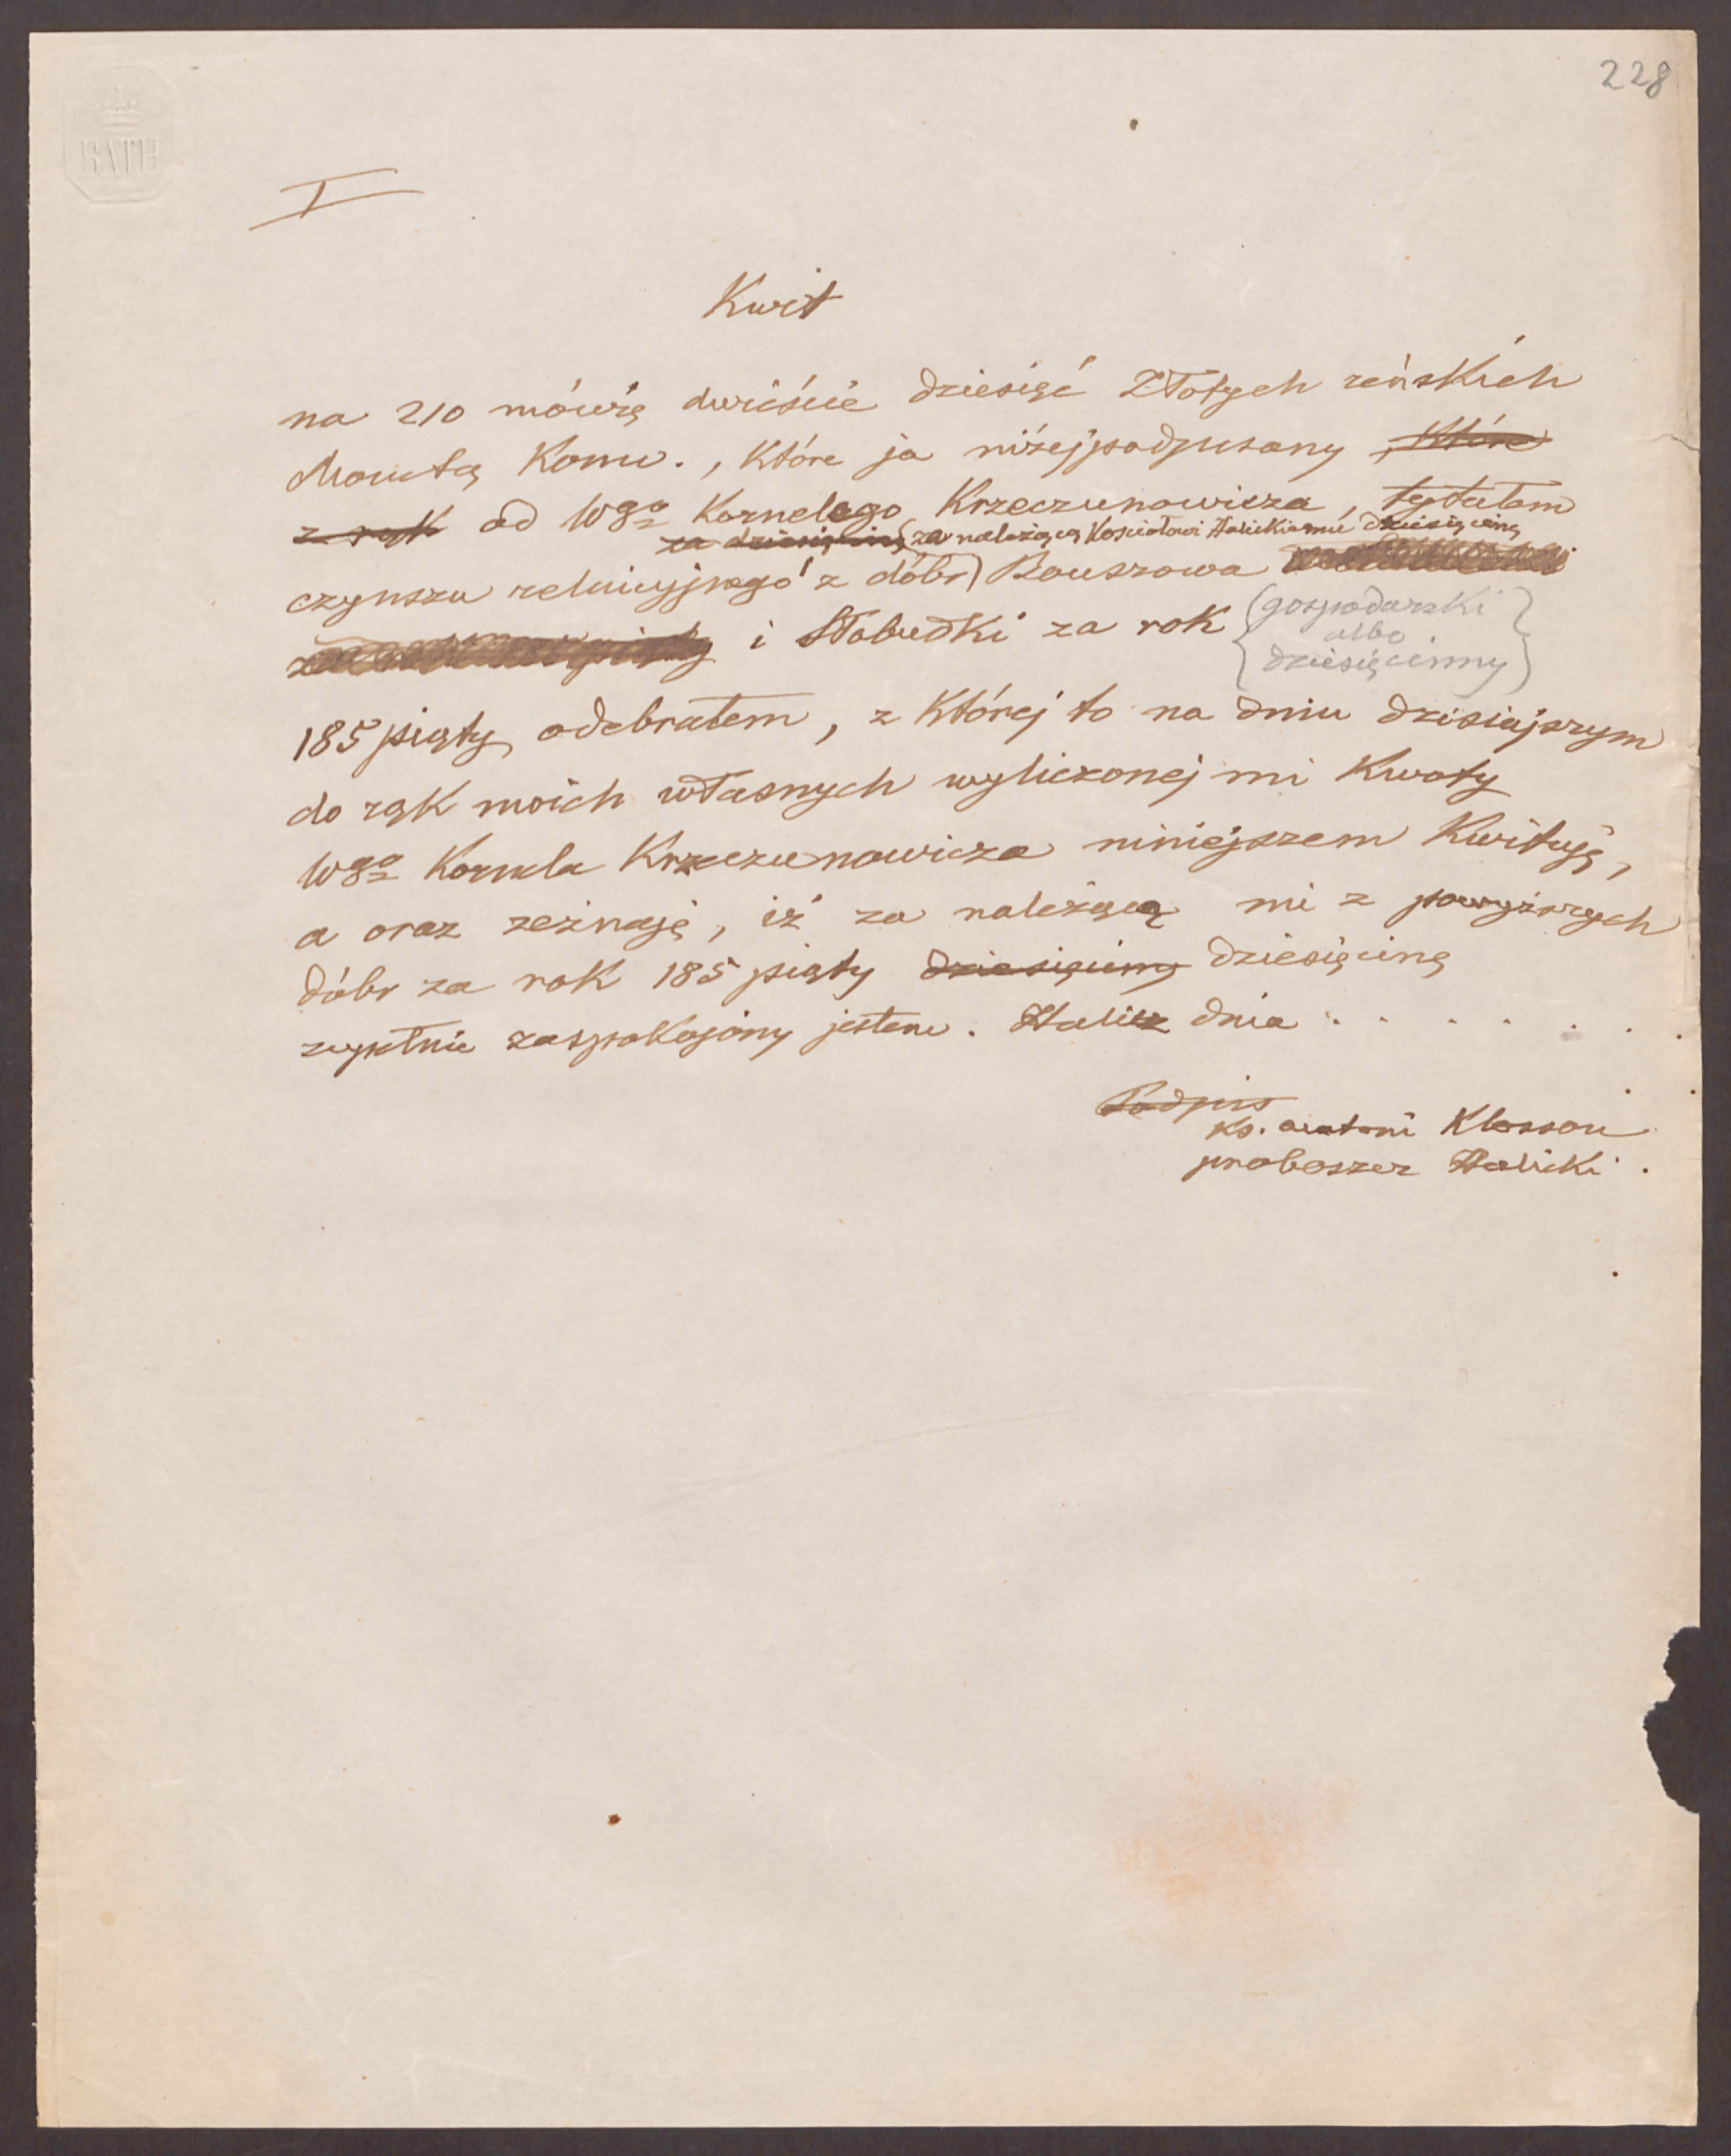 228
BATH
I
Kwit
na 210 mówię dwieście dziesięć Złotych reńskich
Monetą Konw., które ja niżejpodpisany które
z rąk od Wgo Kornelego Krzeczunowicza, tytułem
za dziesięcinę (za należącą Kościołowi Halickiemu dziesięcinę
czynszu reluicyjnego z dóbr) Bouszowa
i Słobudki za rok (gospodarski
albo
dziesięcinny)
185 piąty odebrałem, z której to na dniu dzisiajszym
do rąk moich własnych wyliczonej mi Kwoty
Wgo Kornela Krzeczunowicza niniejszem Kwituję,
a oraz zeznaję, iż za należącą mi z powyższych
dóbr za rok 185 piąty dziesięcinę dziesięcinę
zupełnie zaspokojony jestem. Halicz dnia . . . . . . .
Podpis
Ks. Antoni
proboszcz Halicki.